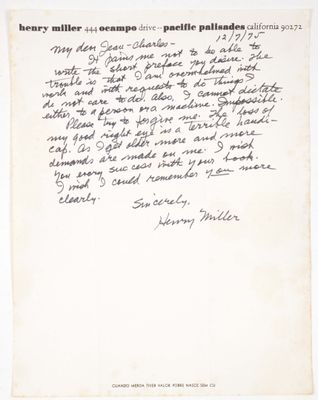 henry miller 444 ocampo drive -- pacific palisades california 90272
12/7/75
My dear Jean-Charles -
It pains me not to be able to
write the short preface you desire. The
trouble is that I am overwhelmed with
work and with requests to do things I
do not care to do. Also, I cannot dictate
either to a person or a machine. Impossible.
Please try to forgive me. The loss of
my good right eye is a terrible handi-
cap. As I get older more and more
demands are made on me. I wish
you every success with your book.
I wish I could remember you more
clearly.
Sincerely,
Henry Miller
QUANDO MERDA TIVER VALOR POBRE NASCE SEM CU